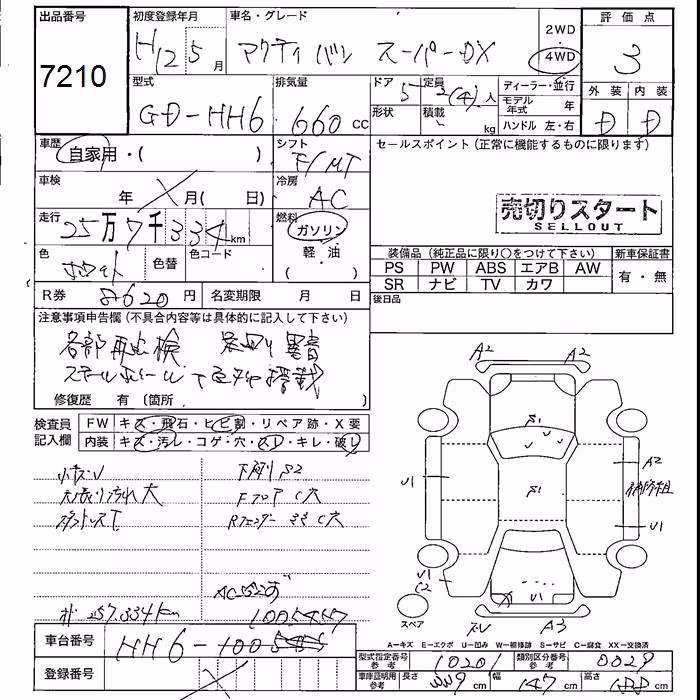 出品番号
7210
初度登録年月
H12 5月
車名・グレード
アクティ バン スーパーDX
2WD
4WD
評価点
3
型式
GD-HH6
排気量
660cc
ドア
5
形状
定員
2(4)人
積載
kg
ディーラー・並行
モデル年式 年
ハンドル 左・右
外装
内装
D
D
車歴
自家用・( )
シフト
F/MT
セールスポイント(正常に機能するものに限ります)
車検
年 月( 日)
冷房
AC
売切りスタート
SELLOUT
走行
25万7千334km
燃料
ガソリン
軽・油
( )
色
ホワイト
色替
色コード
装備品(純正品に限り○をつけて下さい)
新車保証書
PS PW ABS エアB AW
SR ナビ TV カワ
有・無
R券 8620円
名変期限 月 日
後日品
注意事項申告欄(不具合内容等は具体的に記入して下さい)
スチールホイール
修復歴 有〔箇所 〕
検査員記入欄
FW キズ・飛石・ヒビ割・リペア跡・X要
内装 キズ・汚レ・コゲ・穴・スレ・キレ・破レ
小キズU
下廻りS2
大
フロア C穴
Rフェンダー C穴
257.334km
車台番号
HH6-100
登録番号
A2
A2
S1
S1
U1
A2
U1
U1
C2
X
U1
A3
スペア
A-キズ E-エクボ U-凹み W-補修跡 S-サビ C-腐食 XX-交換済
型式指定番号 参考
10201
類別区分番号 参考
0029
車庫証明用 参考
長さ cm
幅 147cm
高さ cm